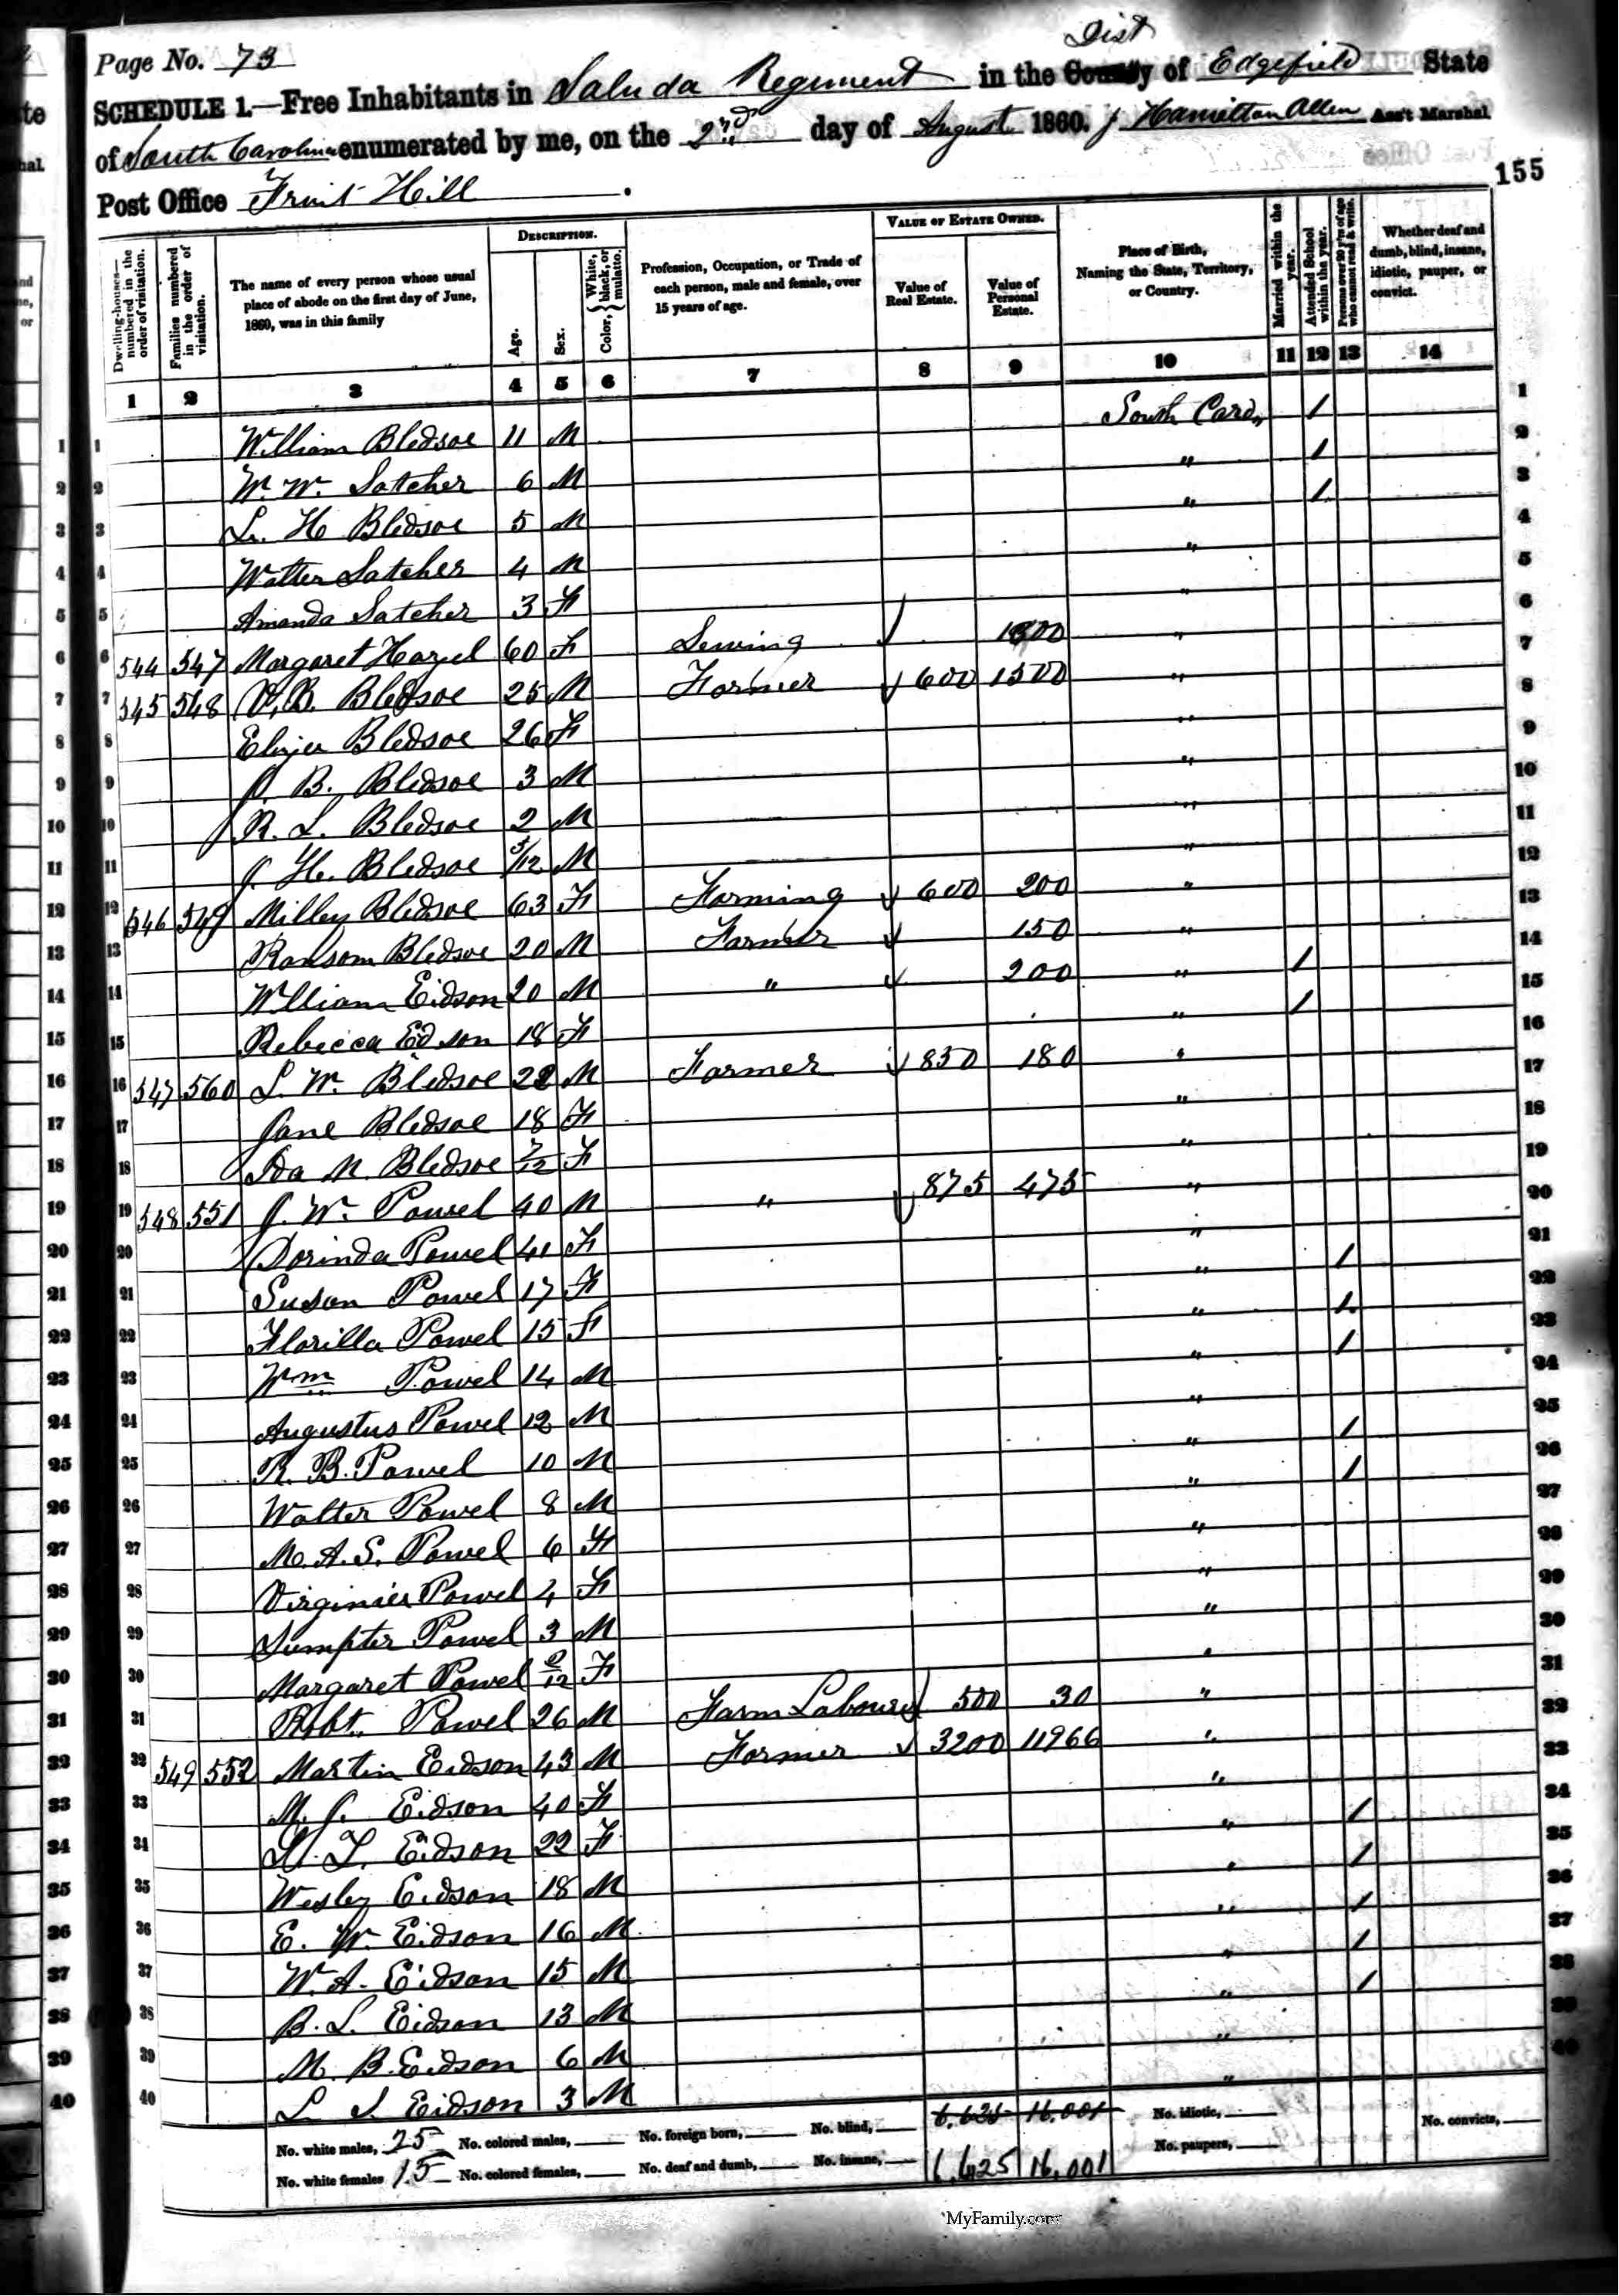 Page No. 73
SCHEDULE 1.—Free Inhabitants in Saluda Regiment in the County of Edgefield State
Dist
of South Carolina enumerated by me, on the 2nd day of August 1860. J Hamilton Allen Ass't Marshal
Post Office Fruit Hill
155
Dwelling-houses—numbered in the order of visitation.
Families numbered in the order of visitation.
The name of every person whose usual place of abode on the first day of June, 1860, was in this family
DESCRIPTION.
Age.
Sex.
Color, White, black, or mulatto.
Profession, Occupation, or Trade of each person, male and female, over 15 years of age.
VALUE OF ESTATE OWNED.
Value of Real Estate.
Value of Personal Estate.
Place of Birth, Naming the State, Territory, or Country.
Married within the year.
Attended School within the year.
Persons over 20 y'rs of age who cannot read & write.
Whether deaf and dumb, blind, insane, idiotic, pauper, or convict.
1 2 3 4 5 6 7 8 9 10 11 12 13 14
1 William Bledsoe 11 M South Caro 1 1
2 W. W. Satcher 6 M " 1 2
3 L. H Bledsoe 5 M " 1 3
4 Walter Satcher 4 M " 4
5 Amanda Satcher 3 F " 5
6 544 547 Margaret Hazel 60 F Sewing " 6
7 545 548 Bledsoe 25 M Farmer 600 1500 " 7
8 Bledsoe 26 F " 8
9 J. B. Bledsoe 3 M " 9
10 R. L. Bledsoe 2 M " 10
11 J. H. Bledsoe 5/12 M " 11
12 546 549 Milley Bledsoe 63 F Farming 600 200 " 12
13 Ransom Bledsoe 20 M Farmer 150 " 13
14 William Eidson 20 M " 200 " 1 14
15 Rebecca Edson 18 F " 1 15
16 547 560 L. W. Bledsoe 22 M Farmer 850 180 " 16
17 Jane Bledsoe 18 F " 17
18 Ida M. Bledsoe 7/12 F " 18
19 548 551 J. W. Powel 40 M " 875 475 " 19
20 Dorinda Powel 41 F " 20
21 Susan Powel 17 F " 1 21
22 Florilla Powel 15 F " 1 22
23 Wm Powel 14 M " 1 23
24 Augustus Powel 12 M " 24
25 R. B. Powel 10 M " 1 25
26 Walter Powel 8 M " 1 26
27 M. A. S. Powel 6 F " 27
28 Virginia Powel 4 F " 28
29 Sumpter Powel 3 M " 29
30 Margaret Powel F " 30
31 Robt. Powel 26 M Farm Labourer 500 30 " 31
32 549 552 Martin Eidson 43 M Farmer 3200 11966 " 32
33 M. J. Eidson 40 F " 33
34 Eidson 22 F " 1 34
35 Wesley Eidson 18 M " 1 35
36 E. W. Eidson 16 M " 1 36
37 W. A. Eidson 15 M " 1 37
38 B. L. Eidson 13 M " 1 38
39 M. B. Eidson 6 M " 39
40 Eidson 3 M " 40
No. white males, 25 No. colored males, No. foreign born, No. blind, 6,625 16,001 No. idiotic, No. convicts,
No. white females 15 No. colored females, No. deaf and dumb, No. insane, 6,625 16,001 No. paupers,
MyFamily.com